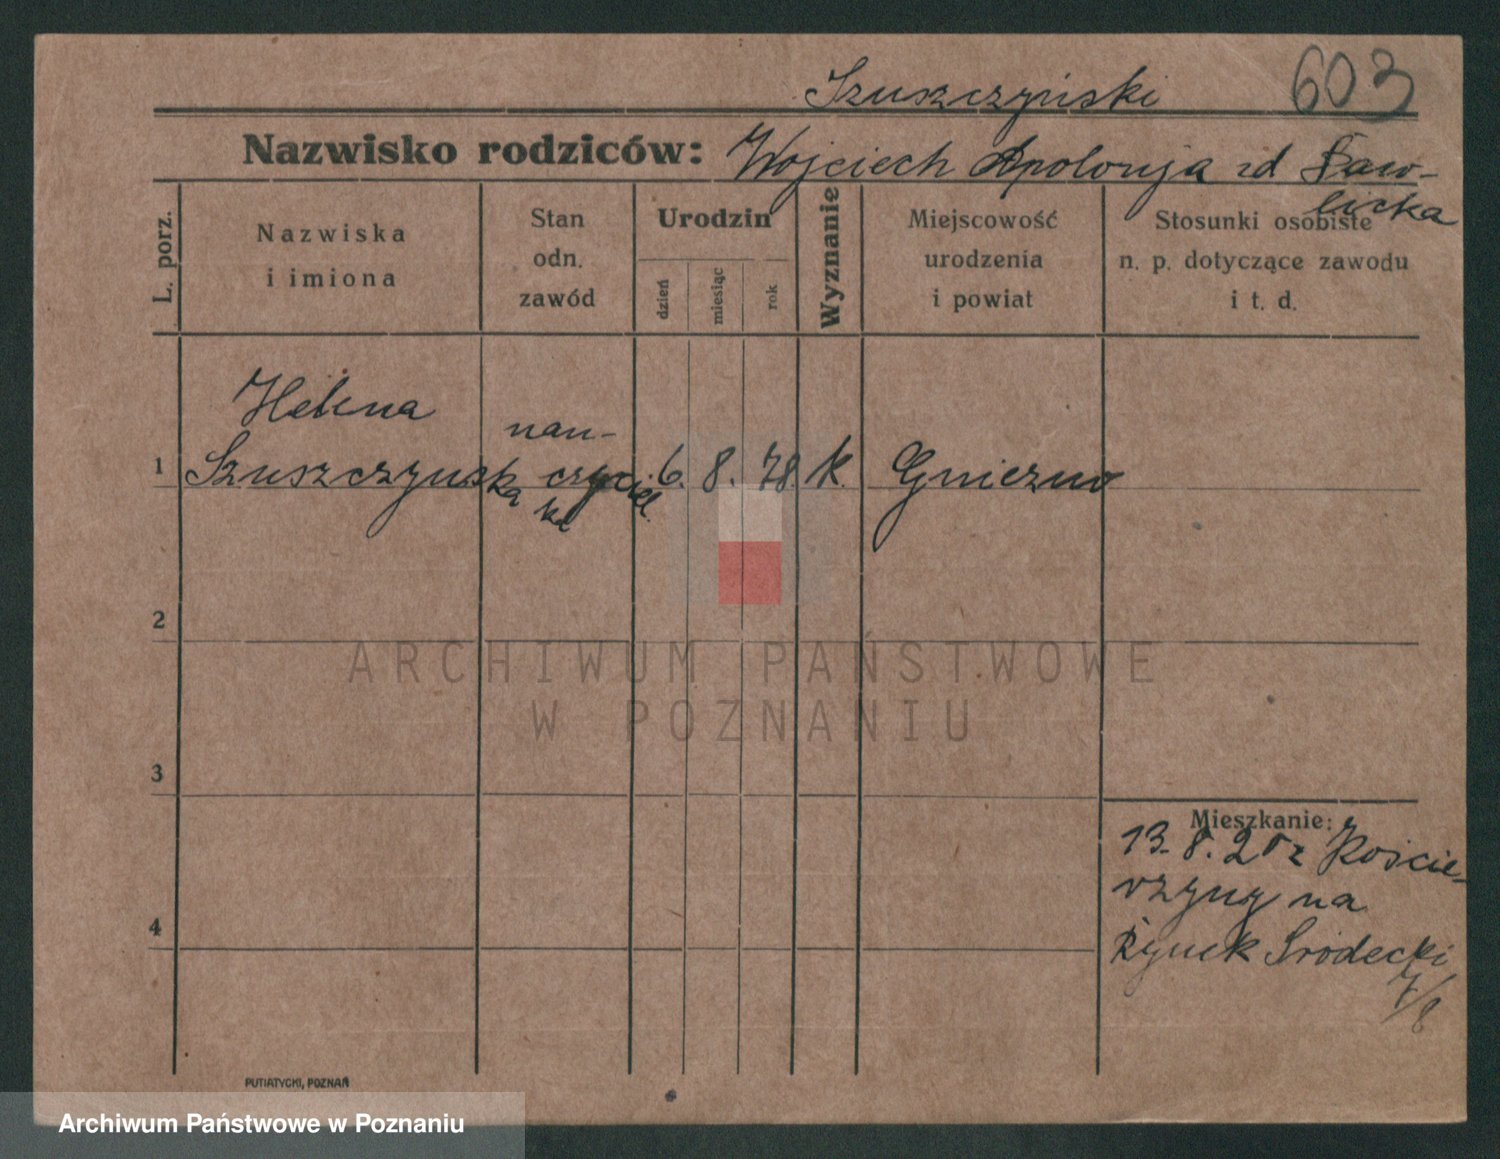 Szuszczyński 603
Nazwisko rodziców: Wojciech Apolonja zd Saw-
licka
L. porz.
Nazwiska
i imiona
Stan
odn.
zawód
Urodzin
dzień
miesiąc
rok
Wyznanie
Miejscowość
urodzenia
i powiat
Stosunki osobiste
n. p. dotyczące zawodu
i t. d.
Helena
nau-
1 Szuszczynska czyciel 6. 8. 78. k. Gniezno
ka
2
ARCHIWUM PAŃSTWOWE
W POZNANIU
3
Mieszkanie:
13. 8. 20 z Koście-
rzyny na
4
Rynek Śródecki
7/8
PUTIATYCKI, POZNAŃ
Archiwum Państwowe w Poznaniu